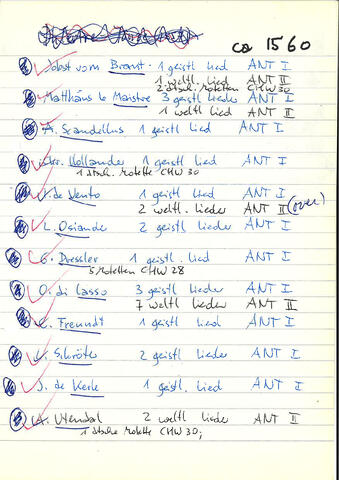 ca 1560
Jobst vom Brant. 1 geistl Lied ANT I
1 weltl. Lied ANT II
2 dtsch. Motetten CHW 30
Matthäus le Maistre 3 geistl Lieder ANT I
1 weltl Lied ANT II
A. Scandellus 1 geistl Lied ANT I
Chr. Hollander 1 geistl Lied ANT I
1 dtsch. Motette CHW 30
I. de Vento 1 geistl Lied ANT I
2 weltl. Lieder ANT II (over)
L. Osiander 2 geistl Lieder ANT I
G. Dressler 1 geistl. Lied ANT I
5 Motetten CHW 28
O. di Lasso 3 geistl Lieder ANT I
7 weltl Lieder ANT II
C. Freundt 1 geistl Lied ANT I
L. Schröter 2 geistl Lieder ANT I
J. de Kerle 1 geistl. Lied ANT I
A. Utendal 2 weltl Lieder ANT II
1 dtsche Motette CHW 30;